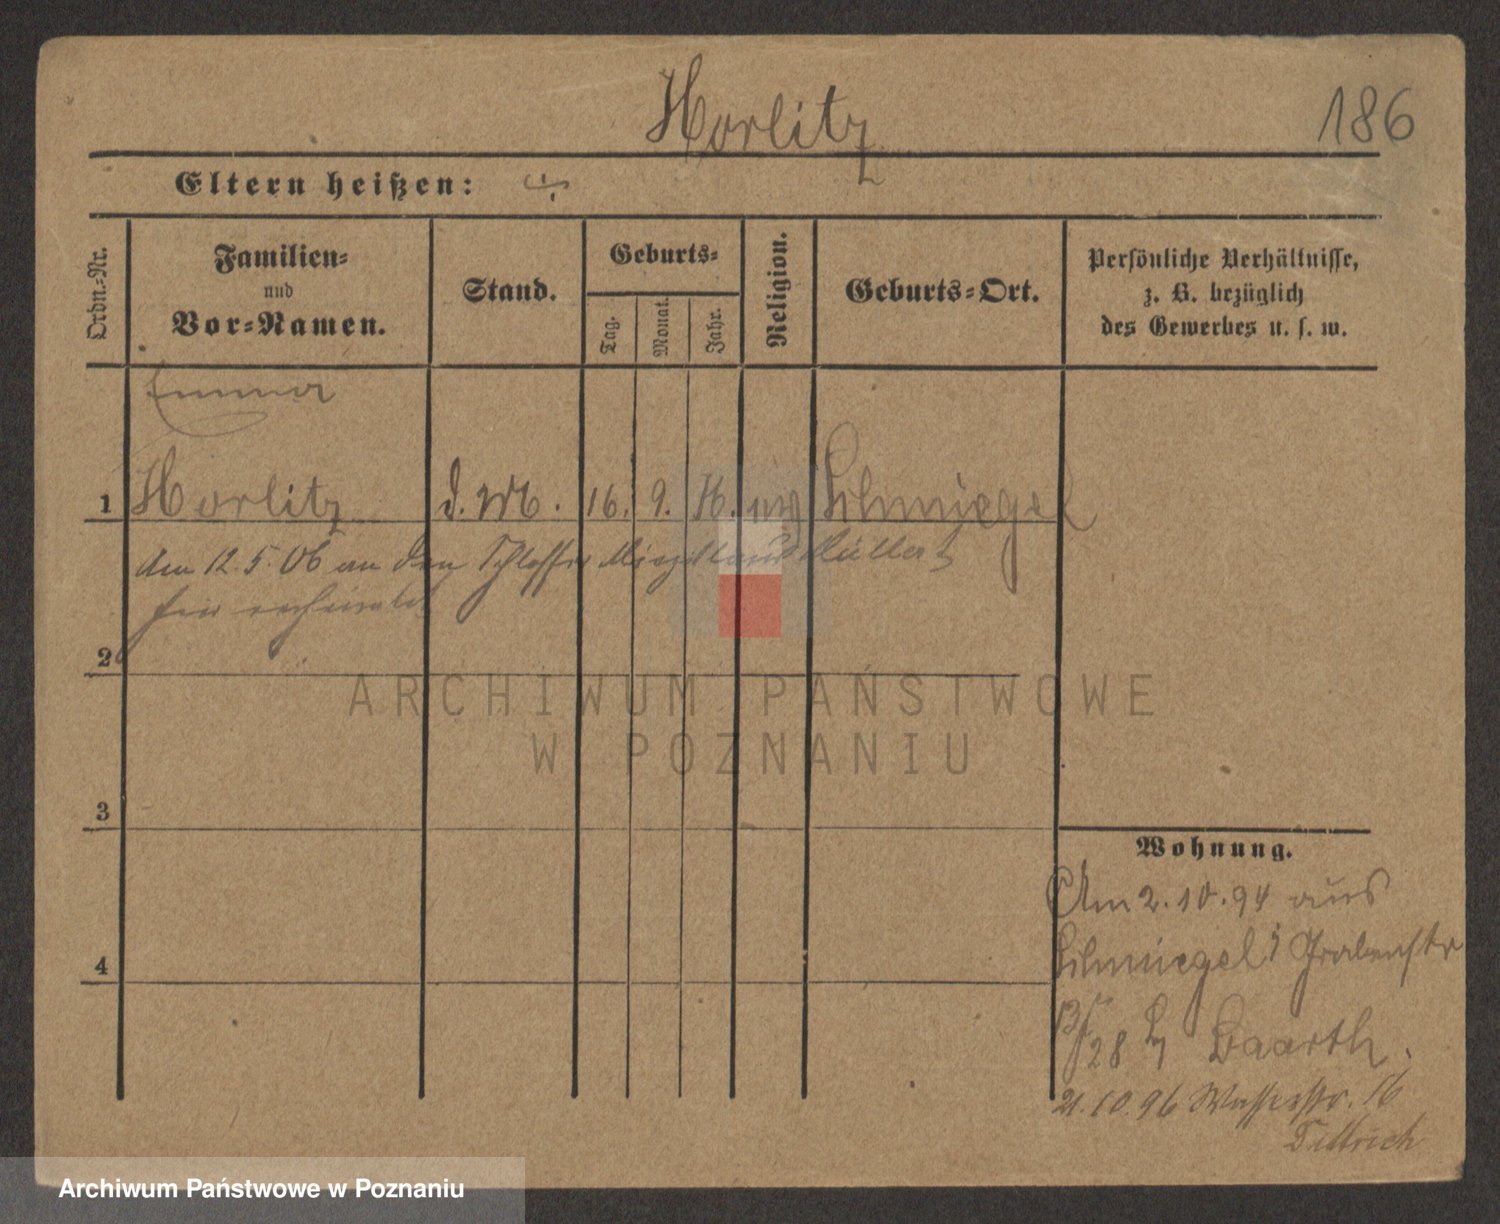 Horlitz
186
Eltern heißen: ./.
Ordn.-Nr.
Familien-
und
Vor-Namen.
Stand.
Geburts-
Tag.
Monat.
Jahr.
Religion.
Geburts-Ort.
Persönliche Verhältnisse,
z. B. bezüglich
des Gewerbes u. s. w.
Emma
1 Horlitz d. M. 16. 9. 76. evg Schmiegel
Am 12.5.06 an den Schlosser
hier verheiratet
2
3
4
ARCHIWUM PAŃSTWOWE
W POZNANIU
Wohnung.
Am 2.10.94 aus
Schmiegel Grabenstr
28 Baarth.
21.10.96 Wasserstr. 16
Dittrich
Archiwum Państwowe w Poznaniu